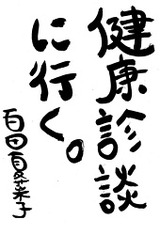 健康診談
に行く。
百田夏菜子